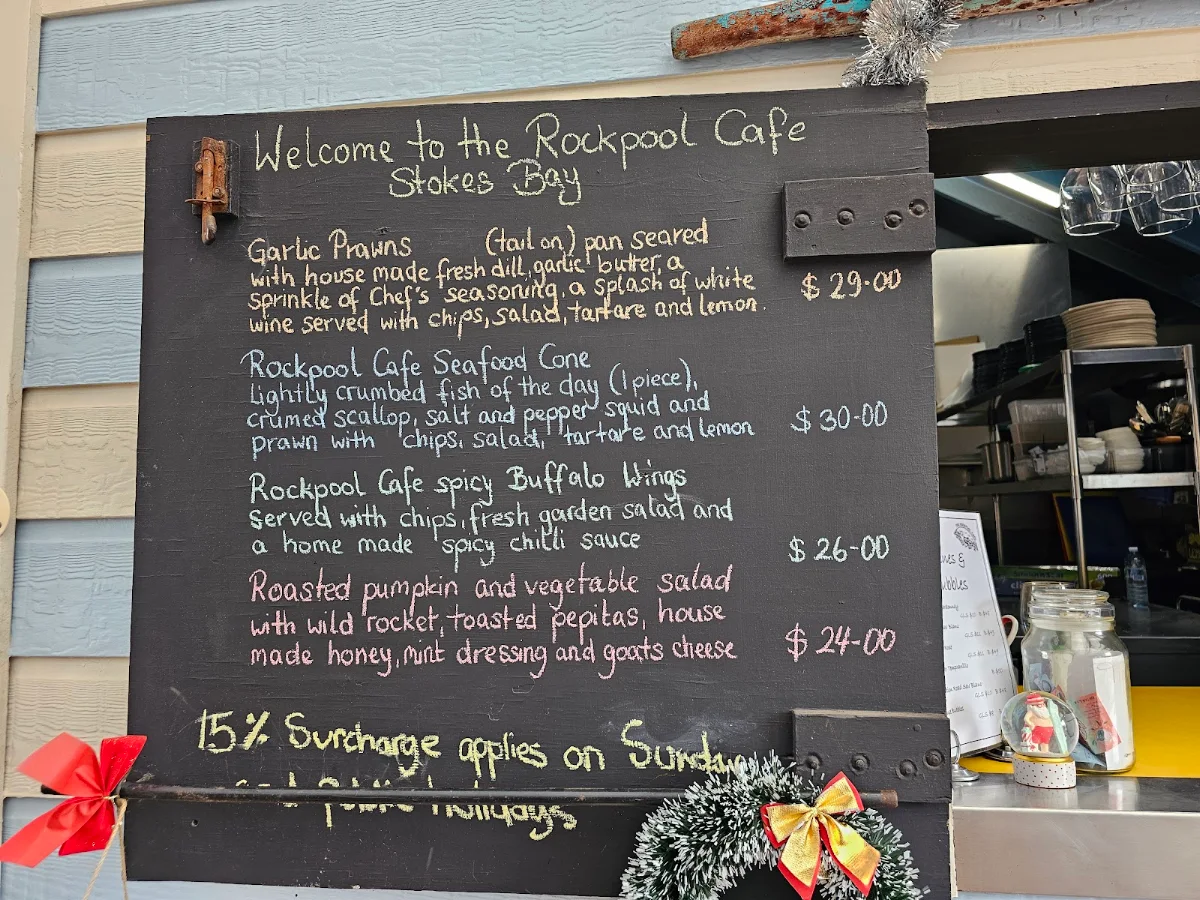 Welcome to the Rockpool Cafe
Stokes Bay
Garlic Prawns (tail on) pan seared
with house made fresh dill, garlic butter, a
sprinkle of Chef's seasoning, a splash of white
wine served with chips, salad, tartare and lemon.
$ 29-00
Rockpool Cafe Seafood Cone
Lightly crumbed fish of the day (1 piece),
crumed scallop, salt and pepper squid and
prawn with chips, salad, tartare and lemon
$ 30-00
Rockpool Cafe spicy Buffalo Wings
Served with chips, fresh garden salad and
a home made spicy chilli sauce
$ 26-00
Roasted pumpkin and vegetable salad
with wild rocket, toasted pepitas, house
made honey, mint dressing and goats cheese
$ 24-00
15% Surcharge applies on Sunday
and public holidays